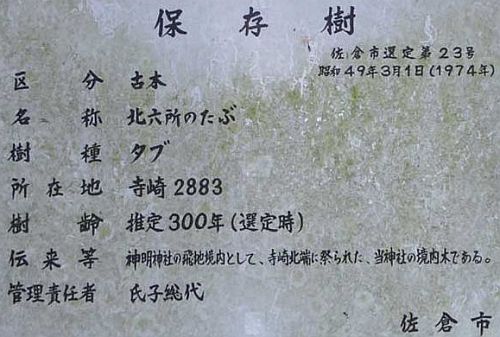 保存樹
佐倉市選定第23号
昭和49年3月1日(1974年)
区分 古木
名称 北六所のたぶ
樹種 タブ
所在地 寺崎2883
樹齢 推定300年(選定時)
伝来等 神明神社の飛地境内として、寺崎北端に祭られた、当神社の境内木である。
管理責任者 氏子総代
佐倉市